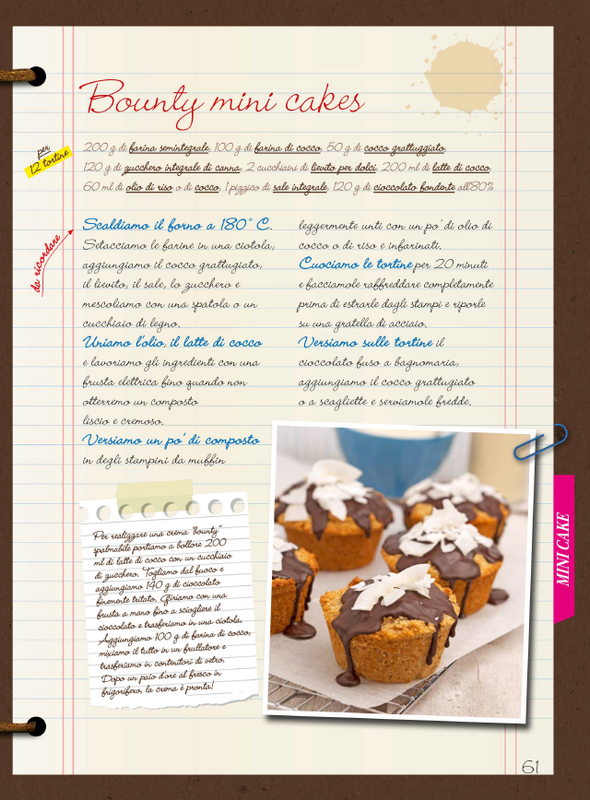 Bounty mini cakes
per
12 tortine
200 g di farina semintegrale, 100 g di farina di cocco, 50 g di cocco grattuggiato,
120 g di zucchero integrale di canna, 2 cucchiaini di lievito per dolci, 200 ml di latte di cocco,
60 ml di olio di riso o di cocco, 1 pizzico di sale integrale, 120 g di cioccolato fondente all'80%
da ricordare
Scaldiamo il forno a 180° C.
Setacciamo le farine in una ciotola,
aggiungiamo il cocco grattugiato,
il lievito, il sale, lo zucchero e
mescoliamo con una spatola o un
cucchiaio di legno.
Uniamo l'olio, il latte di cocco
e lavoriamo gli ingredienti con una
frusta elettrica fino quando non
otterremo un composto
liscio e cremoso.
Versiamo un po' di composto
in degli stampini da muffin
leggermente unti con un po' di olio di
cocco o di riso e infarinati.
Cuociamo le tortine per 20 minuti
e facciamole raffreddare completamente
prima di estrarle dagli stampi e riporle
su una gratella di acciaio.
Versiamo sulle tortine il
cioccolato fuso a bagnomaria,
aggiungiamo il cocco grattugiato
o a scagliette e serviamole fredde.
Per realizzare una crema "bounty"
spalmabile portiamo a bollore 200
ml di latte di cocco con un cucchiaio
di zucchero. Togliamo dal fuoco e
aggiungiamo 140 g di cioccolato
finemente tritato. Giriamo con una
frusta a mano fino a sciogliere il
cioccolato e trasferiamo in una ciotola.
Aggiungiamo 100 g di farina di cocco,
mixiamo il tutto in un frullatore e
trasferiamo in contenitori di vetro.
Dopo un paio d'ore al fresco in
frigorifero, la crema è pronta!
MINI CAKE
61